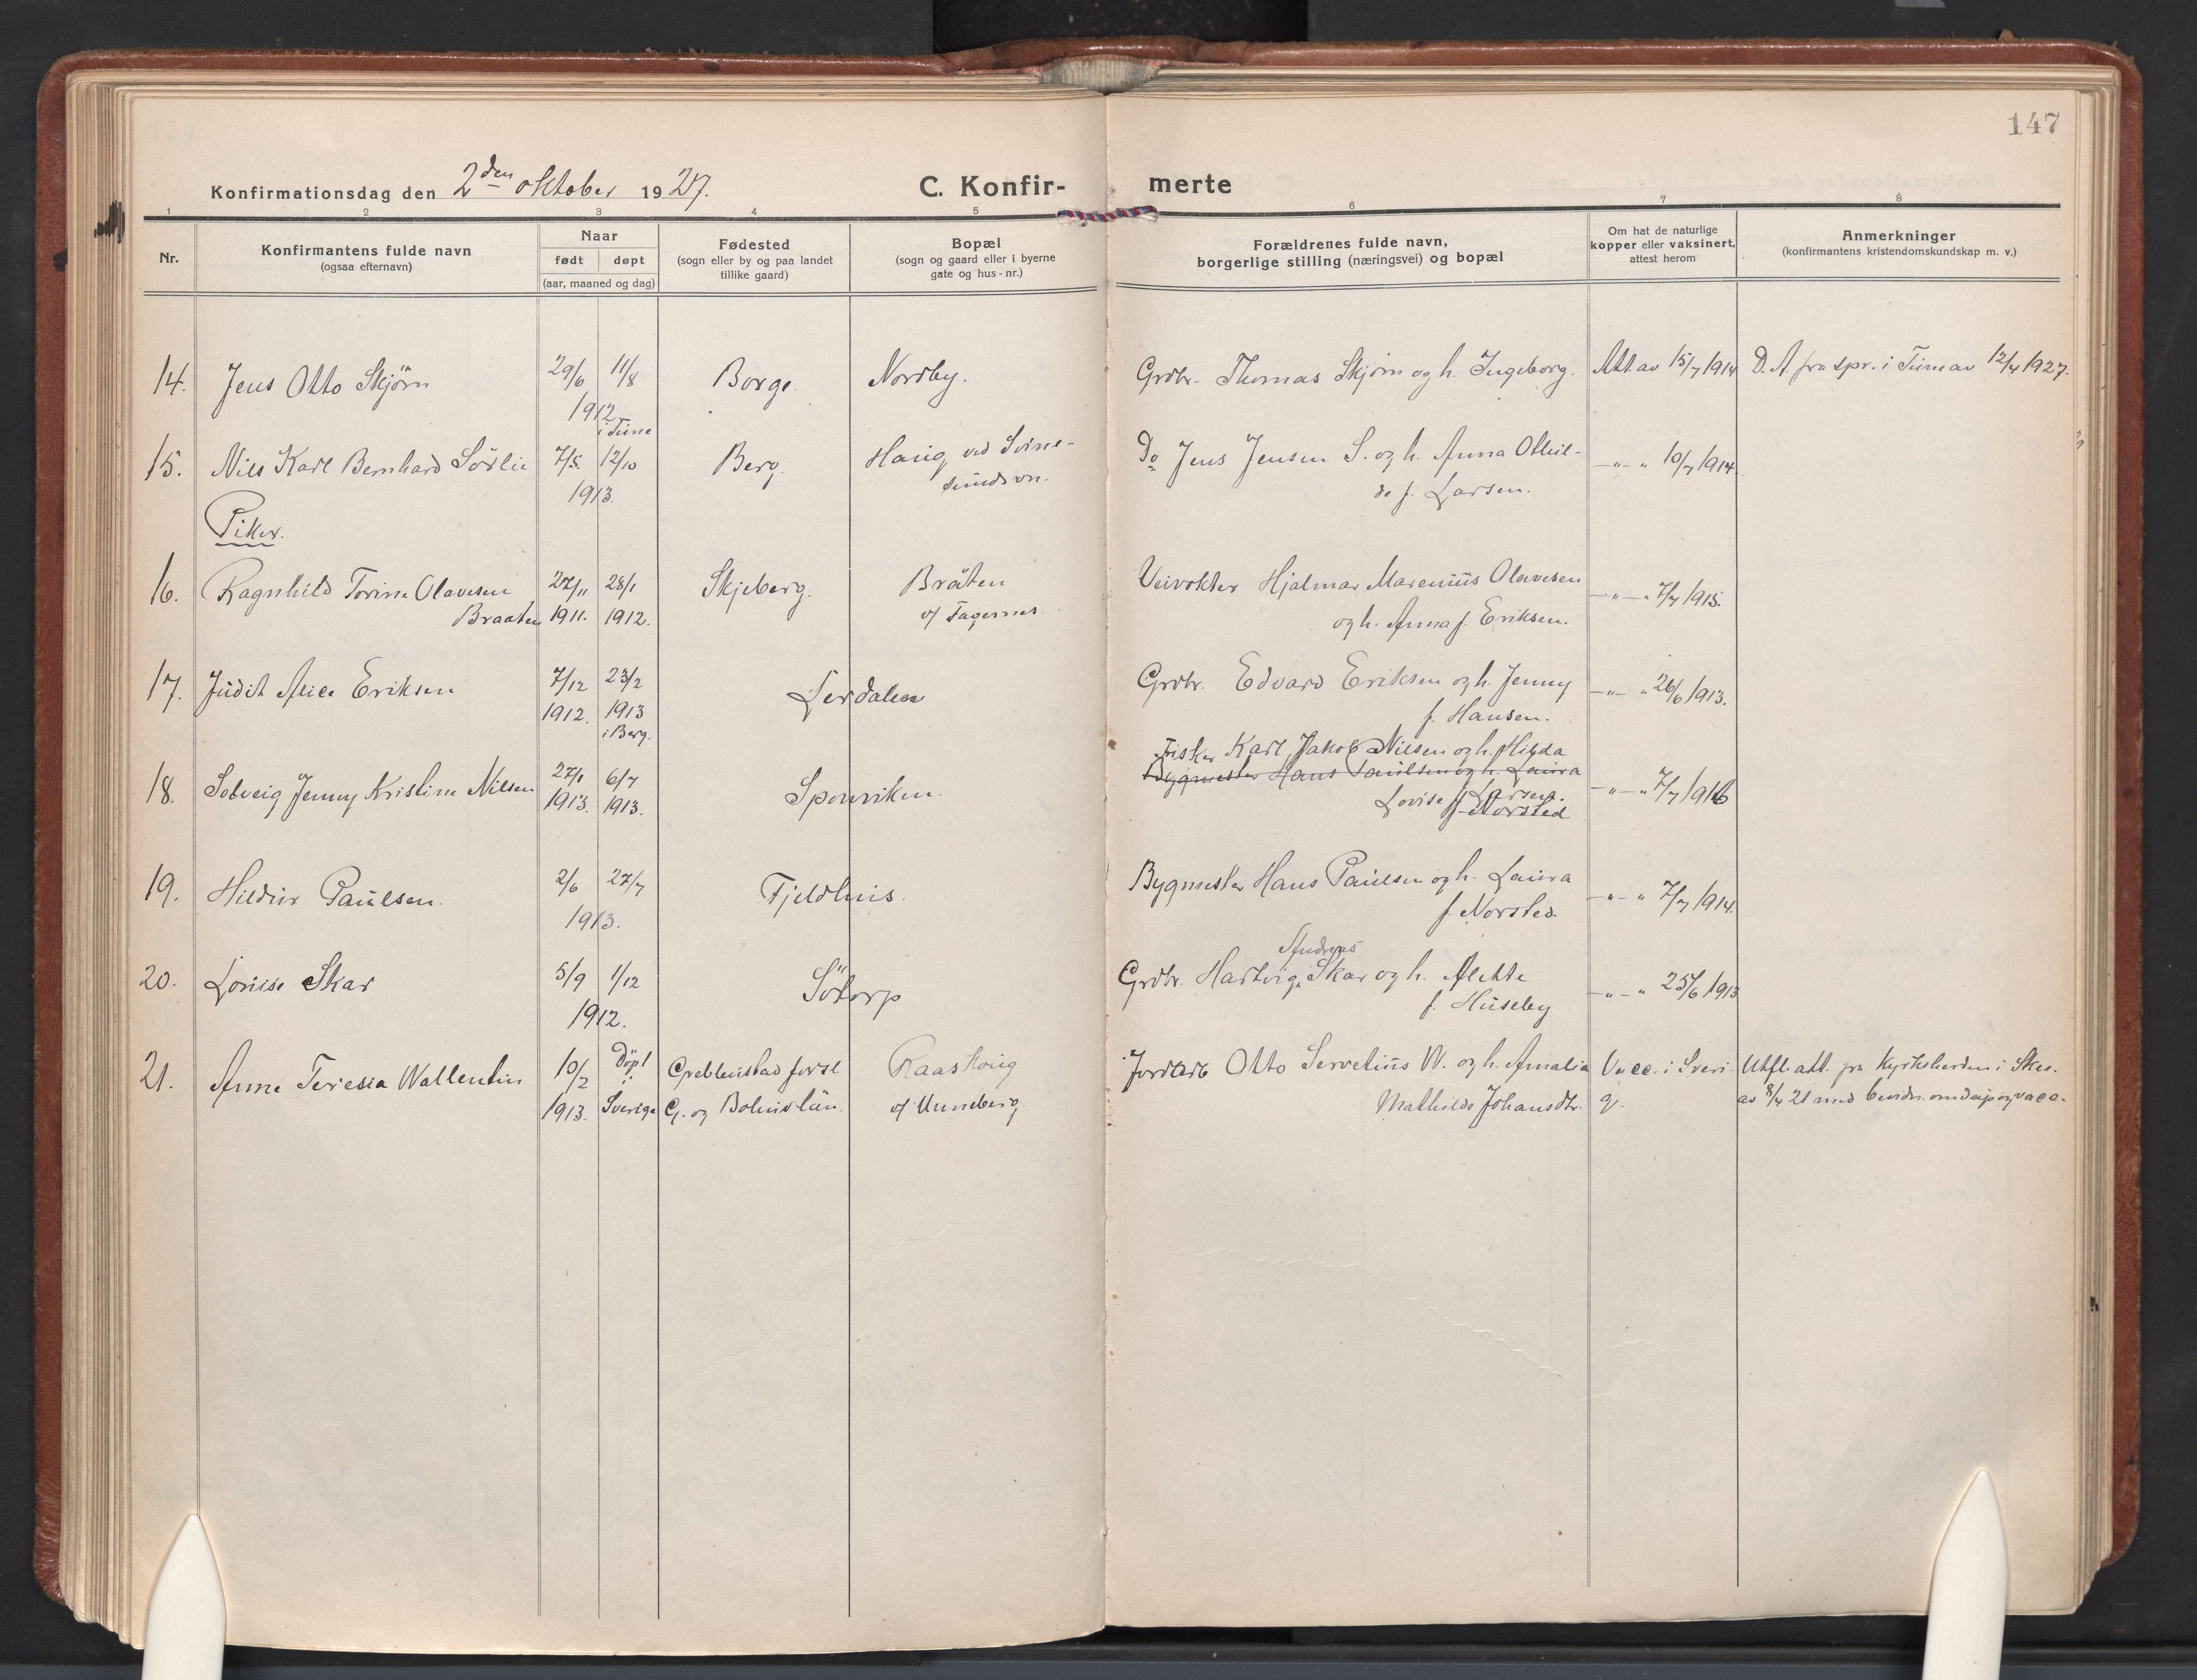 147
Konfirmationsdag den 2den oktober 1927.
C. Konfirmerte
1 2 3 4 5 6 7 8
Nr.
Konfirmantens fulde navn
(ogsaa efternavn)
Naar
født døpt
(aar, maaned og dag)
Fødested
(sogn eller by og paa landet
tillike gaard)
Bopæl
(sogn og gaard eller i byerne
gate og hus-nr.)
Forældrenes fulde navn,
borgerlige stilling (næringsvei) og bopæl
Om hat de naturlige
kopper eller vaksinert,
attest herom
Anmerkninger
(konfirmantens kristendomskundskap m. v.)
14. Jens Otto Skjörn 29/6 11/8 Borge. Nordby. Grdbr. Thomas Skjörn og h. Ingeborg. Att av 15/7 1914 D. A. fra spr. i Tune av 12/4 1927.
1912
i Tune
15. Nils Karl Bernhard Sörlie 7/5. 12/10 Berg. Haug ved Svine- Do Jens Jensen S. og h. Anna Othil- —"— " 10/7 1914.
1913. sundsvn. de f. Larsen.
Piker.
16. Ragnhild Torine Olavesen 27/11 28/1 Skjeberg. Bråten Veivokter Hjalmar Marenius Olavesen —"— " 7/7 1915.
Braaten 1911. 1912. u/ Fagernes. og h. Anna f. Eriksen.
17. Judit Alice Eriksen 7/12 23/2 Lerdalen Grdbr. Edvard Eriksen og h. Jenny —"— " 26/6 1913.
1912. 1913 f. Hansen.
i Berg.
Fisker Karl Jakob Nilsen og h. Hilda
18. Solveig Jenny Kristine Nilsen 27/1 6/7 Sponviken. Bygmester Hans Paulsen og h. Laura —"— " 7/7 1916
1913. 1913. Lovise f. Larsen.
f. Norsted
19. Hildur Paulsen. 2/6 27/7 Fjeldhus. Bygmester Hans Paulsen og h. Laura —"— " 7/7 1914.
1913. f. Norsted.
Andreas
20. Lovise Skar 5/9 1/12 Sötorp Grdbr. Hartvig Skar og h. Alette —"— " 25/6 1913
1912. f. Huseby
21. Anna Teresia Wallentin 10/2 Döpt Grebbenstad forsl Raaskoug Jordarb Otto Servelius W. og h. Amalia Vacc. i Sveri- Utfl. att. fra Kyrkoherden i Skee.
1913. i Sverige G. og Bohuslän. u/ Unneberg Mathilde Johansdtr. g. av 8/4 21 med bevidn. om daap og vacc.